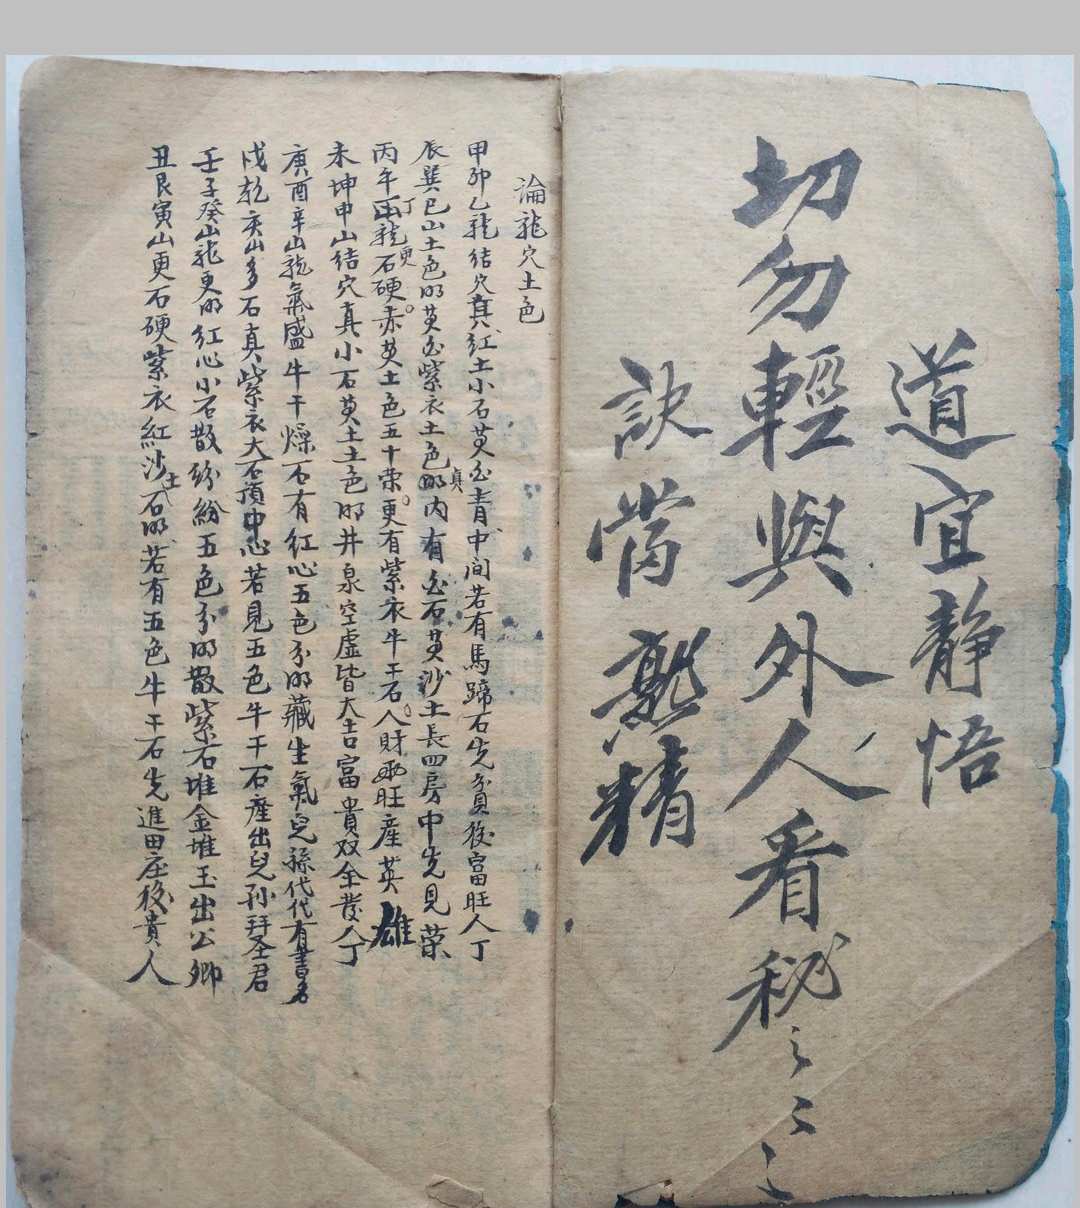 道宜静悟
切勿輕與外人看秘〻〻〻
訣當熟精
論龍穴土色
甲卯乙龍結穴真紅土小石黄白青中间若有馬蹄石先貧後富旺人丁
辰巽巳山土色明黄白紫衣土色明真内有白石黄沙土長四房中先見荣
丙午丁龍石更硬赤黄土色五十荣更有紫衣牛干石人財两旺産英雄
未坤申山結穴真小石黄土土色明井泉空虚皆大吉富貴双全發人丁
庚酉辛山龍氣盛牛干燥石有红心五色分明藏生氣兒孫代代有書名
戌乾亥山多石真紫衣大石頂中心若見五色牛干石産出兒孙拜圣君
壬子癸山龍更明红心小石散纷紛五色分明散紫石堆金堆玉出公卿
丑艮寅山更石硬紫衣紅沙土石明若有五色牛干石先進田庄後貴人